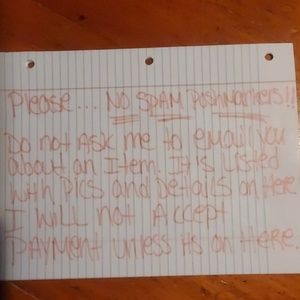 Please... NO SPAM Poshmarkers!!
Do not ASk me to email you
about an Item. It is Listed
with Pics and Details on Here
I will not Accept
PAYMENT unless its on Here.